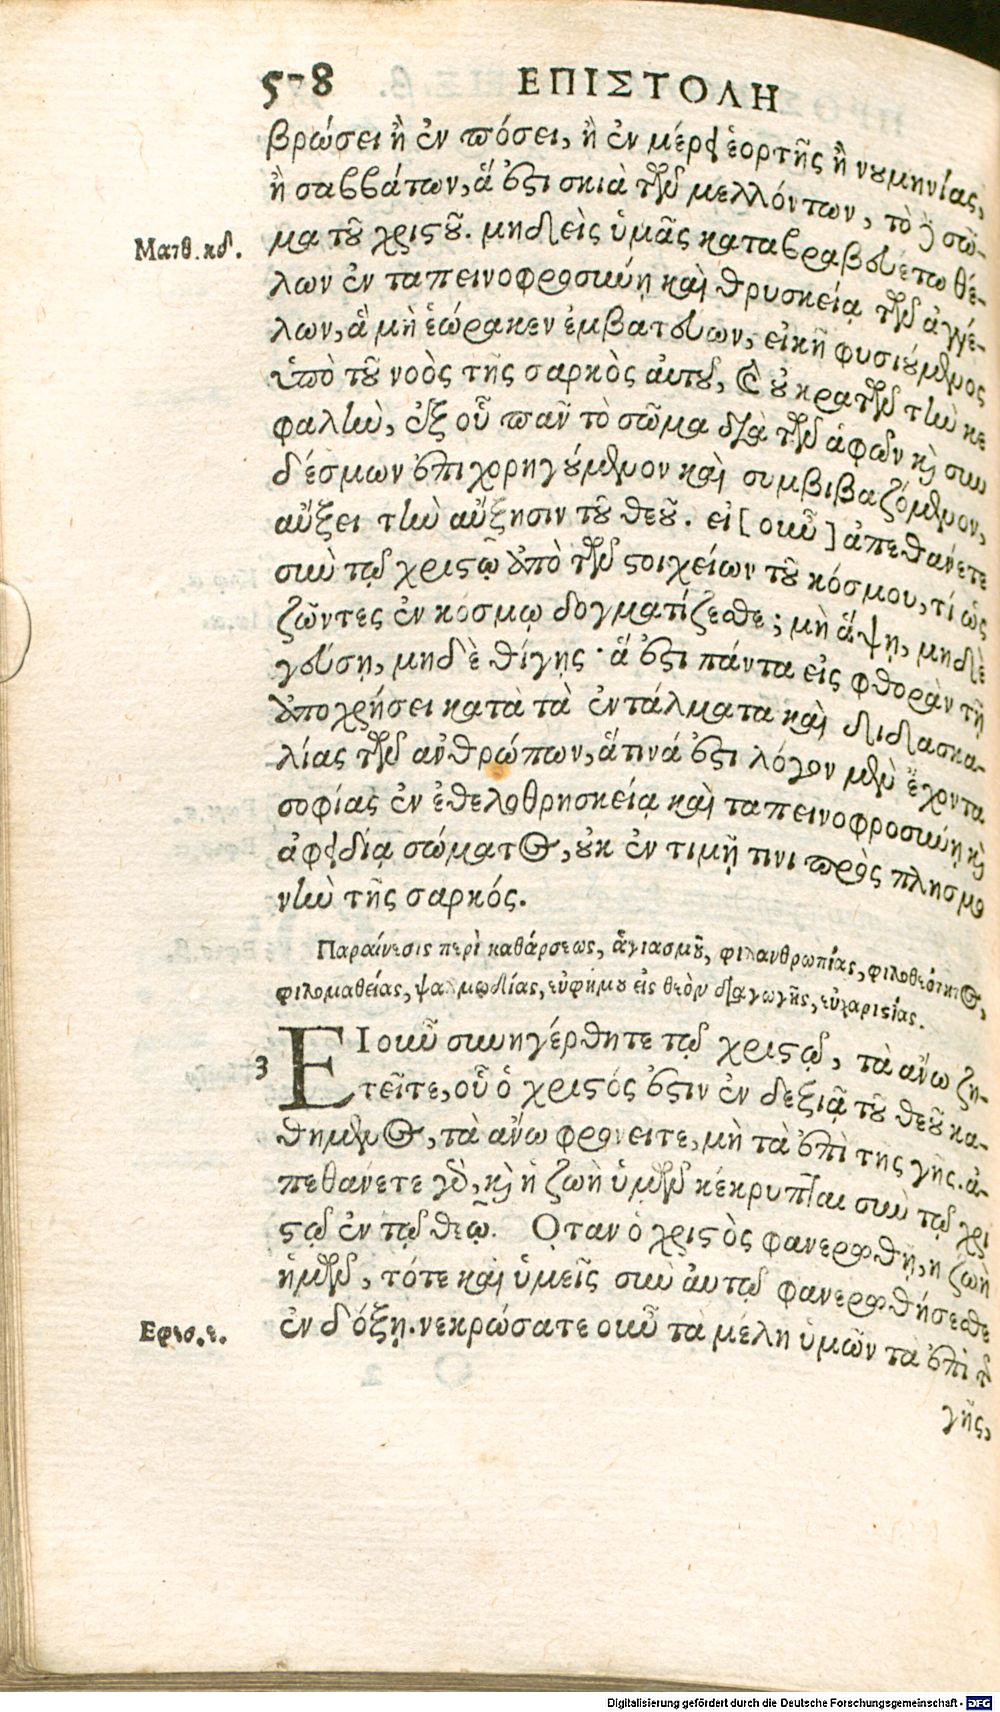 578 ΕΠΙΣΤΟΛΗ
βρώσει ἢ ἐν πόσει, ἢ ἐν μέρει ἑορτῆς ἢ νουμηνίας,
ἢ σαββάτων, ἅ ἐστι σκιὰ τῶν μελλόντων, τὸ δὲ σῶ-
Ματθ. κδ. μα τοῦ χριστοῦ. μηδεὶς ὑμᾶς καταβραβευέτω θέ-
λων ἐν ταπεινοφροσύνῃ καὶ θρησκείᾳ τῶν ἀγγέ-
λων, ἃ μὴ ἑώρακεν ἐμβατεύων, εἰκῆ φυσιούμενος
ὑπὸ τοῦ νοὸς τῆς σαρκὸς αὐτοῦ, καὶ οὐ κρατῶν τὴν κε
φαλὴν, ἐξ οὗ πᾶν τὸ σῶμα διὰ τῶν ἁφῶν καὶ συν
δέσμων ἐπιχορηγούμενον καὶ συμβιβαζόμενον,
αὔξει τὴν αὔξησιν τοῦ θεοῦ. εἰ [οὖν] ἀπεθάνετε
σὺν τῷ χριστῷ ἀπὸ τῶν στοιχείων τοῦ κόσμου, τί ὡς
ζῶντες ἐν κόσμῳ δογματίζεσθε; μὴ ἅψῃ, μηδὲ
γεύσῃ, μηδὲ θίγῃς· ἅ ἐστι πάντα εἰς φθορὰν τῇ
ἀποχρήσει κατὰ τὰ ἐντάλματα καὶ διδασκα-
λίας τῶν ἀνθρώπων, ἅτινά ἐστι λόγον μὲν ἔχοντα
σοφίας ἐν ἐθελοθρησκείᾳ καὶ ταπεινοφροσύνῃ καὶ
ἀφειδίᾳ σώματος, οὐκ ἐν τιμῇ τινι πρὸς πλησμο
νὴν τῆς σαρκός.
Παραίνεσις περὶ καθάρσεως, ἁγιασμοῦ, φιλανθρωπίας, φιλοθεότητος,
φιλομαθείας, ψαλμῳδίας, εὐφήμου εἰς θεὸν διαγωγῆς, εὐχαριστίας.
3 ΕΙ οὖν συνηγέρθητε τῷ χριστῷ, τὰ ἄνω ζη-
τεῖτε, οὗ ὁ χριστός ἐστιν ἐν δεξιᾷ τοῦ θεοῦ κα-
θήμενος, τὰ ἄνω φρονειτε, μὴ τὰ ἐπὶ της γῆς. ἀ-
πεθάνετε γὰρ, καὶ ἡ ζωὴ ὑμῶν κέκρυπται σὺν τῷ χρι
στῷ ἐν τῷ θεῷ. Οταν ὁ χριστὸς φανερωθῇ, ἡ ζωὴ
ἡμῶν, τότε καὶ ὑμεῖς σὺν αὐτῷ φανερωθήσεσθε
Εφεσ. ε. ἐν δόξῃ. νεκρώσατε οὖν τὰ μέλη ὑμῶν τα ἐπὶ τῆς
γῆς,
Digitalisierung gefördert durch die Deutsche Forschungsgemeinschaft - DFG